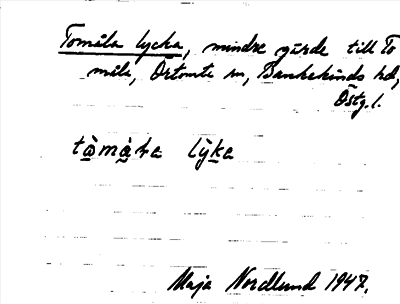 Tomåla lycka, mindre gärde till To
måla, Örtomta sn, Bankekinds hd,
Östg. l.
tòmàɫa lỳka
Maja Nordlund 1947.